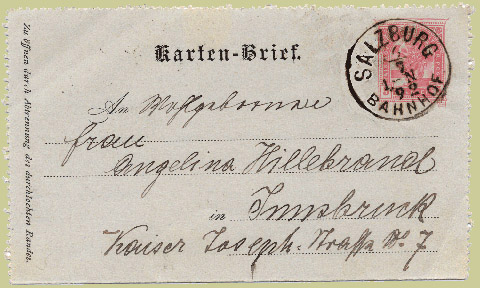 Karten-Brief.
SALZBURG
BAHNHOF
An Wohlgeborene
Frau
Angelina Hillebrand
in Innsbruck
Kaiser Joseph-Straße No 7
Zu öffnen durch Abtrennung des durchlochten Randes.